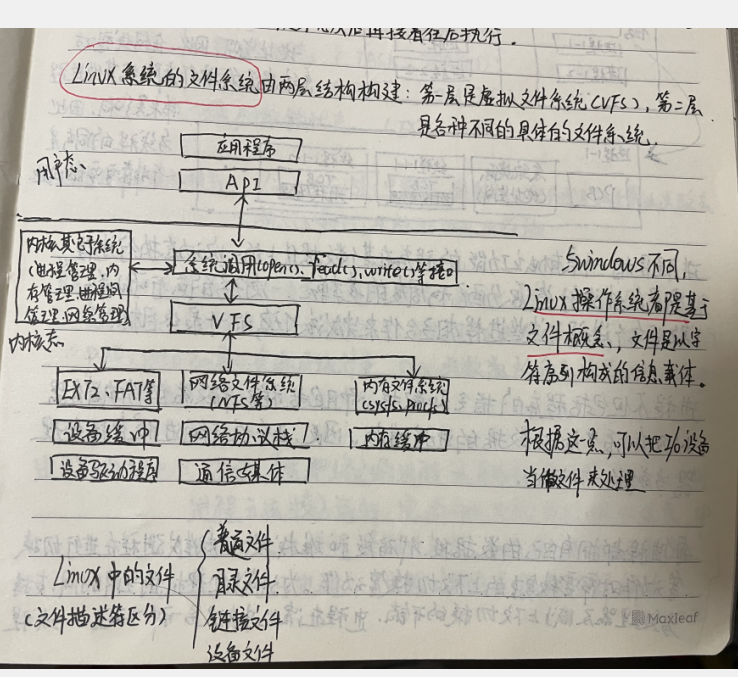 再接着往后执行.
Linux系统的文件系统由两层结构构建: 第一层是虚拟文件系统(VFS), 第二层
是各种不同的具体的文件系统.
用户态
应用程序
API
内核其它子系统
(进程管理、内
存管理、进程间
管理、网络管理)
系统调用(open(), read(), write()等接口
VFS
内核态
EXT2、FAT等
网络文件系统
(NFS等)
内存文件系统
(sysfs, procfs)
设备缓冲
网络协议栈
内存缓冲
设备驱动程序
通信媒体
与windows不同,
Linux操作系统都是基于
文件概念, 文件是以字
符序列构成的信息载体。
根据这一点, 可以把I/O设备
当做文件来处理
Linux中的文件
(文件描述符区分)
普通文件
目录文件
链接文件
设备文件
Maxleaf